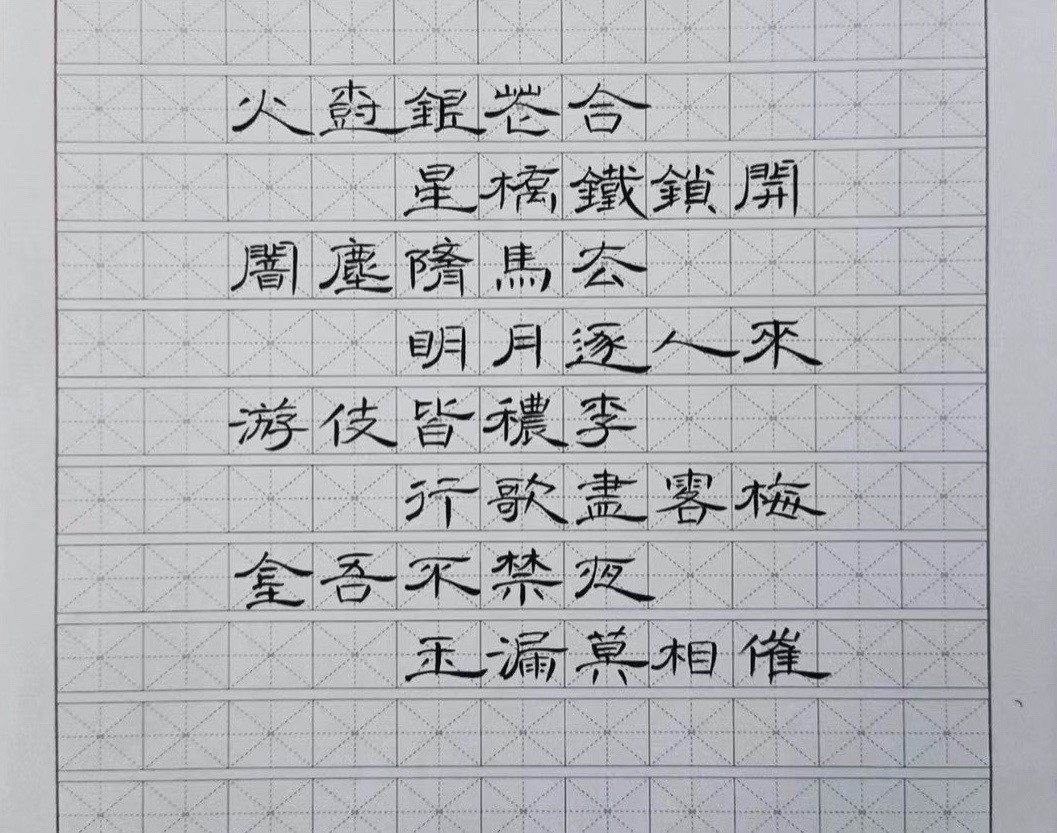 火樹銀花合
星橋鐵鎖開
闇塵隨馬去
明月逐人來
游伎皆穠李
行歌盡落梅
金吾不禁夜
玉漏莫相催